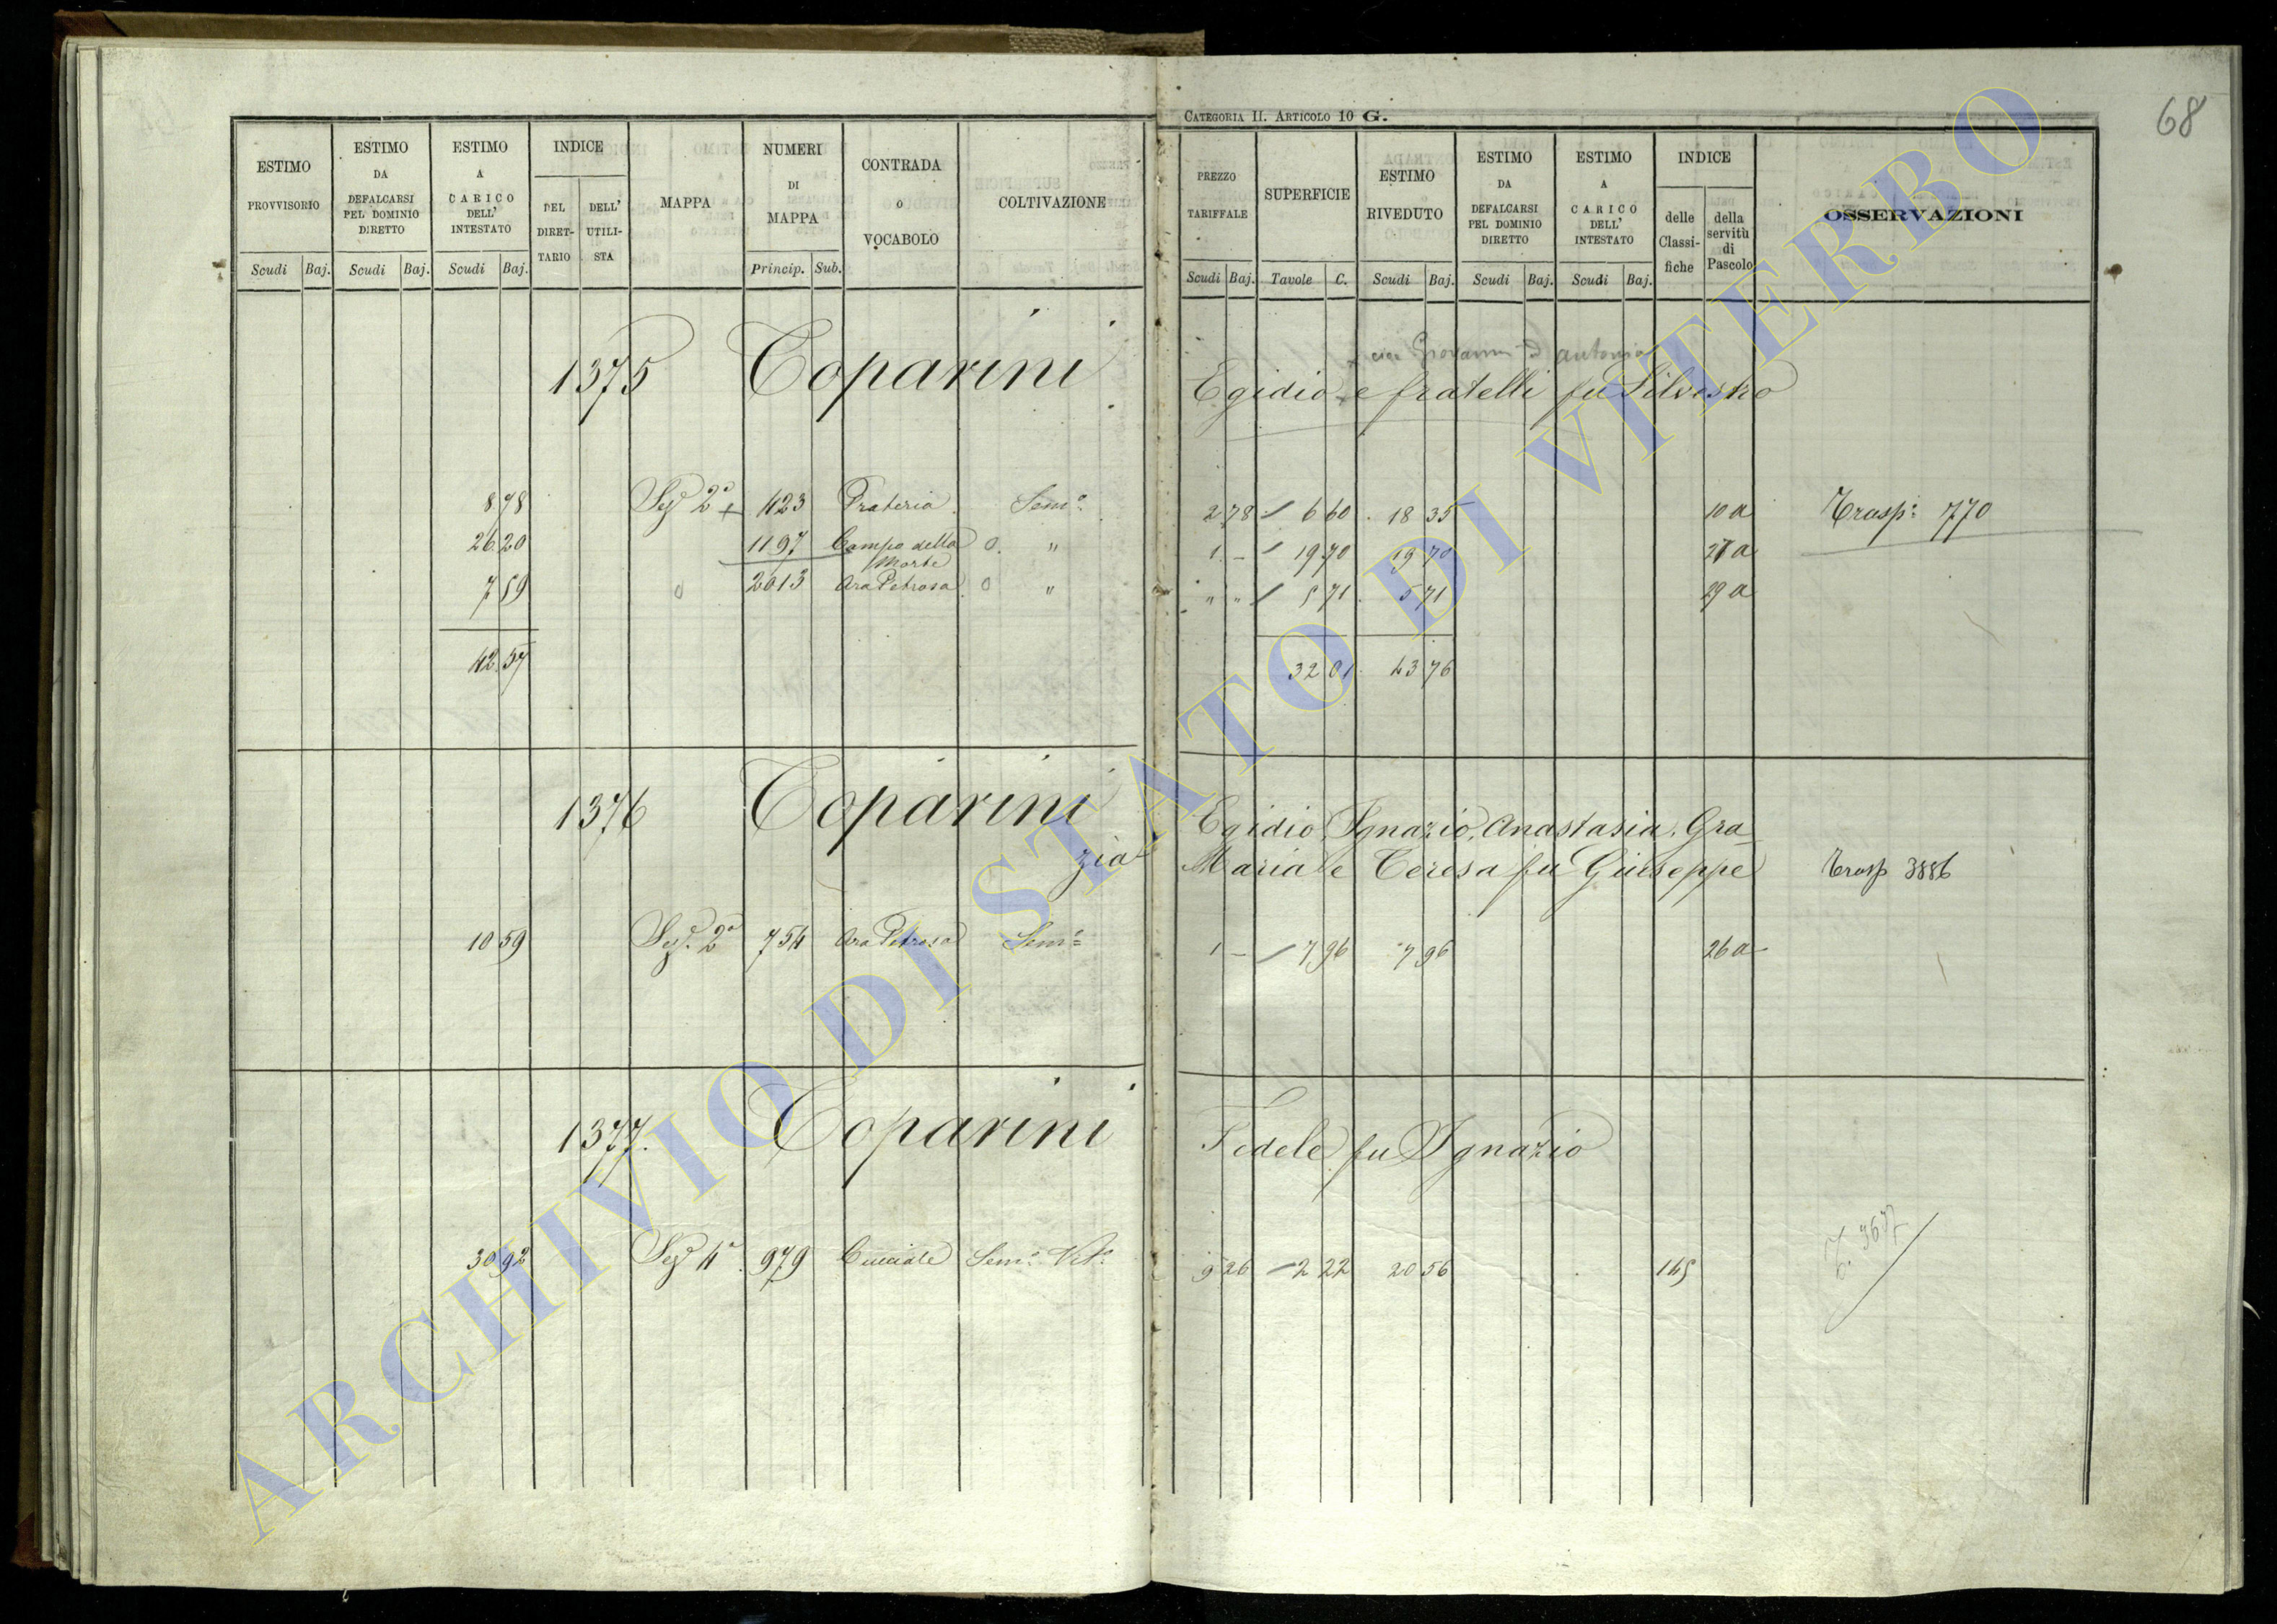 CATEGORIA II. ARTICOLO 10 G.
68
ESTIMO PROVVISORIO Scudi Baj.
ESTIMO DA DEFALCARSI PEL DOMINIO DIRETTO Scudi Baj.
ESTIMO A CARICO DELL' INTESTATO Scudi Baj.
INDICE DEL DIRETTARIO DELL' UTILISTA
MAPPA
NUMERI DI MAPPA Princip. Sub.
CONTRADA O VOCABOLO
COLTIVAZIONE
PREZZO TARIFFALE Scudi Baj.
SUPERFICIE Tavole C.
ESTIMO RIVEDUTO Scudi Baj.
ESTIMO DA DEFALCARSI PEL DOMINIO DIRETTO Scudi Baj.
ESTIMO A CARICO DELL' INTESTATO Scudi Baj.
INDICE delle Classifiche della servitù di Pascolo
OSSERVAZIONI
Giovanni d'Antonio
1375 Toparini Egidio e fratelli fu Silvestro
8 78 Sez 2a 423 Prateria Sem.o 2 78 6 60 18 35 10 a Trasp: 770
26 20 1197 Campo della Morte O " 1 - 19 70 19 70 27 a
7 59 o 2013 Ara Petrosa O " " " 5 71 5 71 29 a
42 57 32 01 43 76
1376 Toparini Egidio, Ignazio, Anastasia, Gra
zia Maria e Teresa fu Giuseppe Trasp 3886
10 59 Sez. 2a 754 Ara Petrosa Sem.o 1 - 7 96 7 96 26 a
1377. Toparini Fedele fu Ignazio
30 92 Sez 4a 979 Cucciale Sem.o Vit.o 9 26 2 22 20 56 145 T. 3677
ARCHIVIO DI STATO DI VITERBO